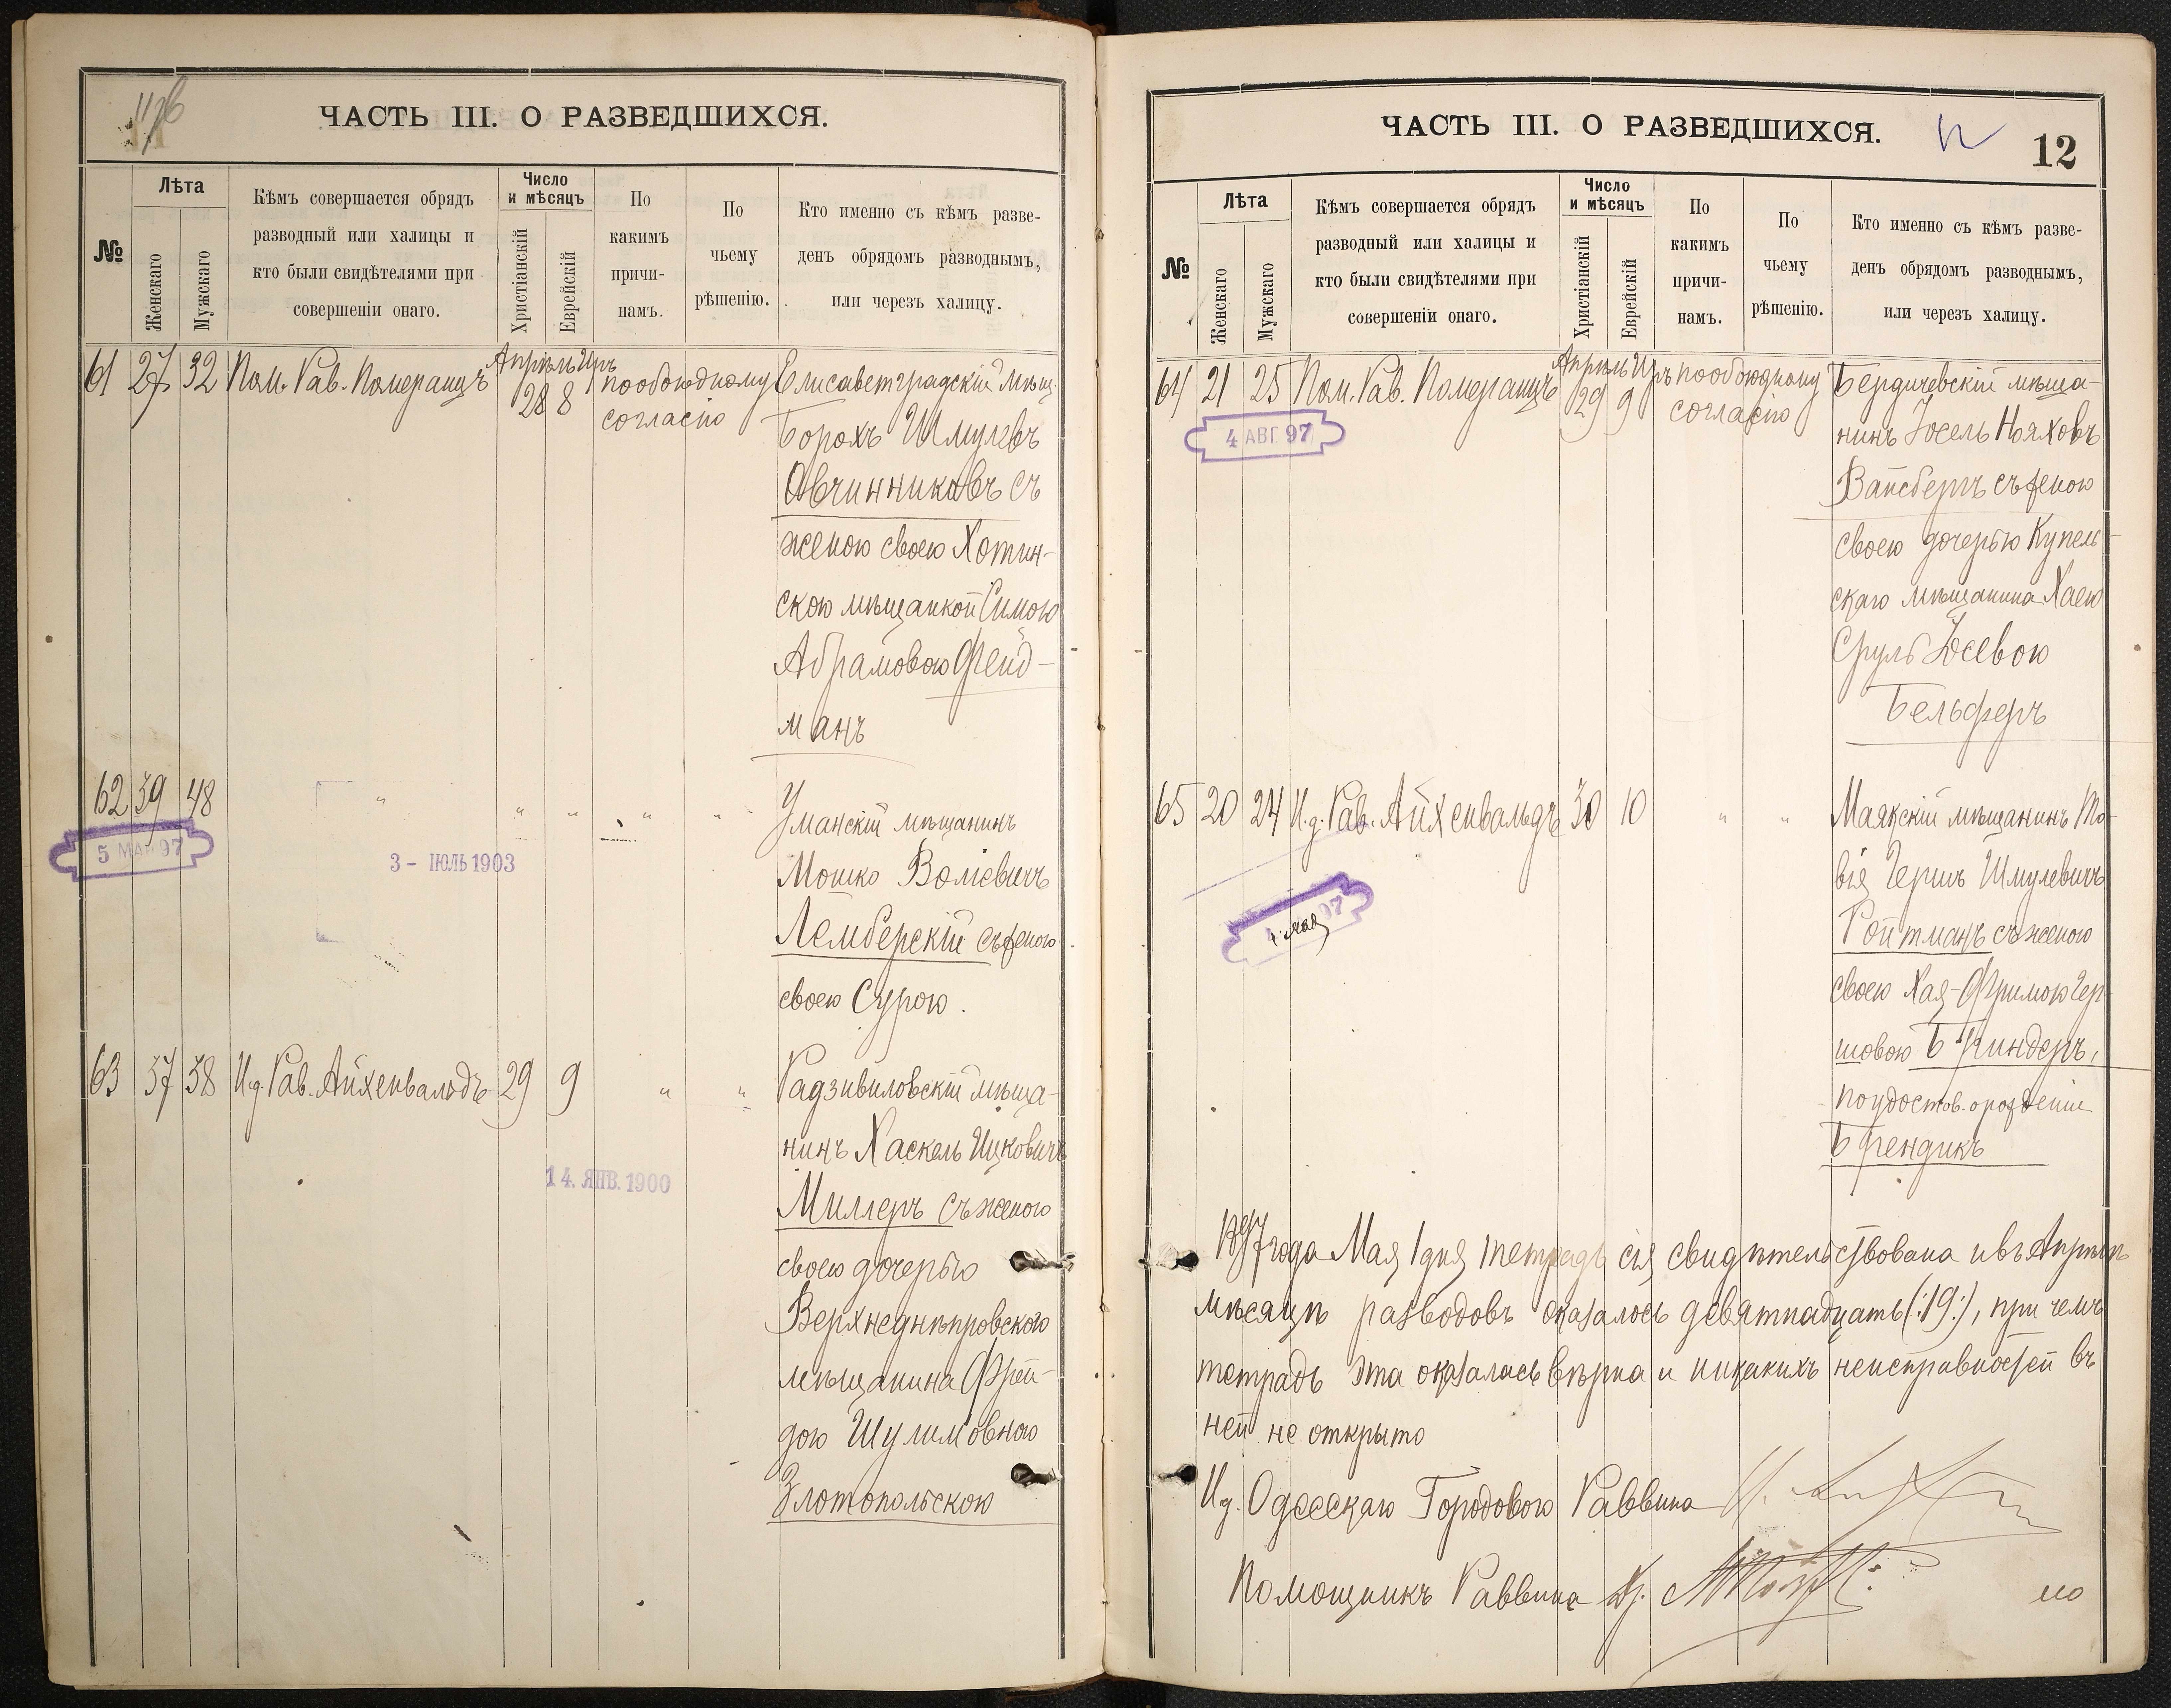 ЧАСТЬ III. О РАЗВЕДШИХСЯ.
№
Лѣта
Женскаго
Мужскаго
Кѣмъ совершается обрядъ
разводный или халицы и
кто были свидѣтелями при
совершеніи онаго.
Число
и мѣсяцъ
Христіанскій
Еврейскій
По
какимъ
причи-
намъ.
По
чьему
рѣшенію.
Кто именно съ кѣмъ разве-
денъ обрядомъ разводнымъ,
или черезъ халицу.
61 27 32 Пом. Рав. Померанцъ Апрѣль Иръ 28 8 по обоюдному Елисаветградскій мѣщ.
согласію
Борохъ Шмулевъ
Овчинниковъ съ
женою своею Хотин-
скою мѣщанкой Симою
Абрамовою Фейд-
манъ
62 39 48 " " " " " Уманскій мѣщанинъ
5 МАР 97
3 - ІЮЛЬ 1903
Мошко Волісвичъ
Лемберскій съ женою
своею Сурою.
63 37 38 И.д. Рав. Айхенвальдъ 29 9 " " Радзивиловскій мѣща-
нинъ Хаскель Ицковичъ
14. ЯНВ. 1900
Миллеръ съ женою
своею дочерью
Верхнеднѣпровского
мѣщанина Фрей-
дою Шулимовною
Златопольскою
ЧАСТЬ III. О РАЗВЕДШИХСЯ.
12
№
Лѣта
Женскаго
Мужскаго
Кѣмъ совершается обрядъ
разводный или халицы и
кто были свидѣтелями при
совершеніи онаго.
Число
и мѣсяцъ
Христіанскій
Еврейскій
По
какимъ
причи-
намъ.
По
чьему
рѣшенію.
Кто именно съ кѣмъ разве-
денъ обрядомъ разводнымъ,
или черезъ халицу.
64 21 25 Пом. Рав. Померанцъ Апрѣль Иръ 29 9 по обоюдному Бердичевскій мѣща-
согласію
4 АВГ 97
нинъ Іосель Нояховъ
Вайсбергъ съ женою
своею дочерью Купель-
скаго мѣщанина Хаею
Сруль Іосевою
Бельферъ
65 20 24 И.д. Рав. Айхенвальдъ 30 10 " " Маякскій мѣщанинъ То-
вія Гершъ Шмулевичъ
1 мая
97
Ройтманъ съ женою
своею Хая-Фримою Гер-
шовою Бриндеръ,
по удостов. о рожденіи
Брендикъ
1897 года Мая 1 дня тетрадь сія свидѣтельствована и въ Апрѣлѣ
мѣсяцѣ разводовъ оказалось девятнадцать (:19:), при чемъ
тетрадь эта оказалась вѣрна и никакихъ неисправностей въ
ней не открыто
И.д. Одесскаго Городового Раввина
Помощникъ Раввина